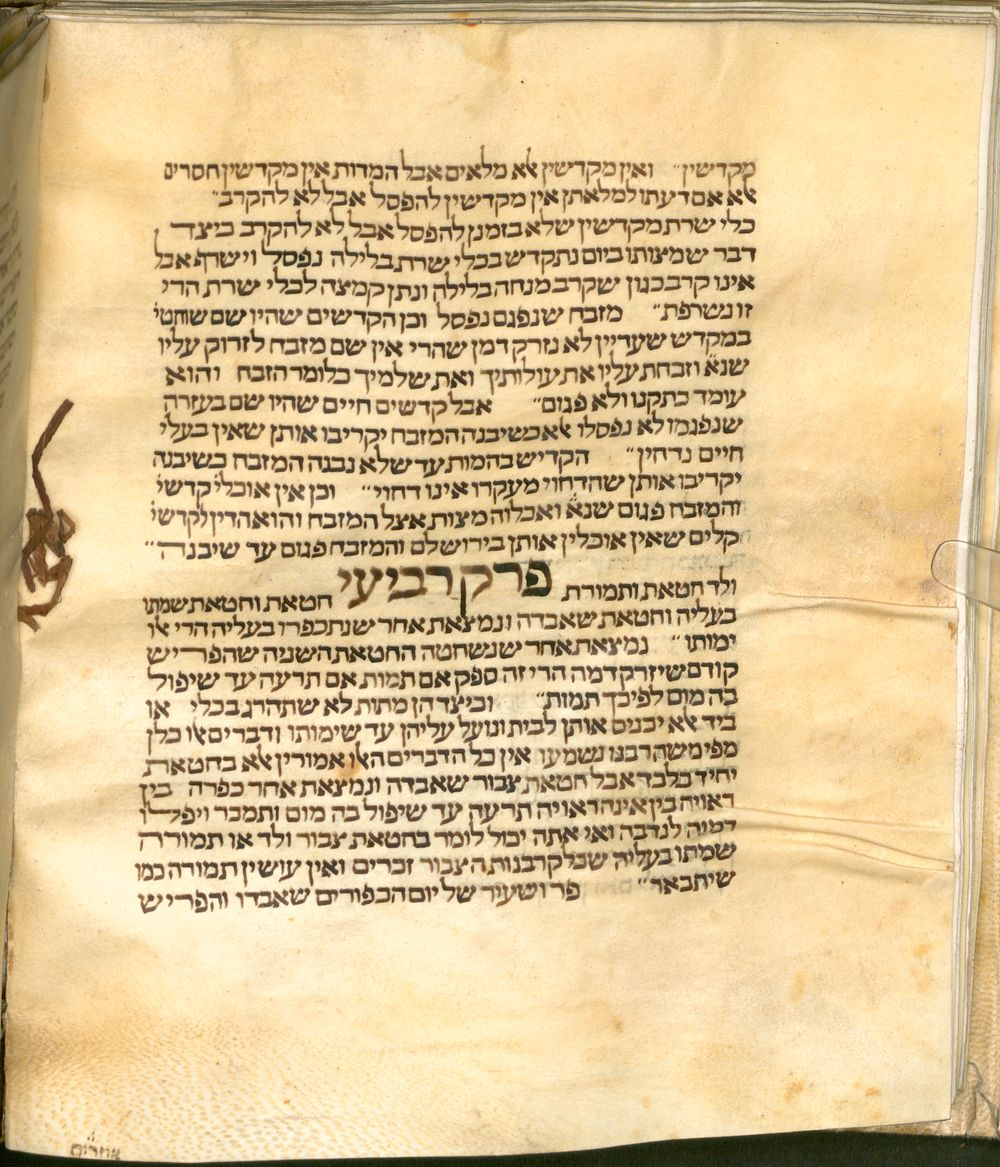 מקדשין״ ואין מקדשין אלא מלאים אבל המדות אין מקדשין חסרים
אלא אם דעתו למלאתן אין מקדשין להפסל אבל לא להקרב״
כלי שרת מקדשין שלא בזמנן להפסל אבל לא להקרב כיצד
דבר שמצותו ביום נתקדש בכלי שרת בלילה נפסל וישרף אבל
אינו קרב כגון שקרב מנחה בלילה ונתן קמצה לכלי שרת הרי
זו נשרפת״ מזבח שנפגם נפסל וכן הקדשים שהיו שם שוחטי
במקדש שעדיין לא נזרק דמן שהרי אין שם מזבח לזרוק עליו
שנא׳ וזבחת עליו את עולותיך ואת שלמיך כלומר הזבח והוא
עומד כתקנו ולא פגום״ אבל קדשים חיים שהיו שם בעזרה
שנפגמו לא נפסלו אלא כשיבנה המזבח יקריבו אותן שאין בעלי
חיים נדחין״ הקדיש בהמות עד שלא נבנה המזבח כשיבנה
יקריבו אותן שהדחוי מעקרו אינו דחוי״ וכן אין אוכלי׳ קדשי׳
והמזבח פגום שנא׳ ואכלוה מצות אצל המזבח והוא הדין לקדשי׳
קלים שאין אוכלין אותן בירושלם והמזבח פגום עד שיבנה״
פרק רביעי
ולד חטאת ותמורת חטאת וחטאת שמתו
בעליה וחטאת שאבדה ונמצאת אחר שנתכפרו בעליה הרי אלו
ימותו״ נמצאת אחר שנשחטה החטאת השניה שהפריש
קודם שיזרק דמה הרי זה ספק אם תמות אם תרעה עד שיפול
בה מום לפיכך תמות״ וכיצד הן מתות לא שתהרג בכלי או
ביד אלא יכניס אותן לבית ונועל עליהן עד שימותו ודברים אלו כלן
מפי משה רבנו נשמעו אין כל הדברים האלו אמורין אלא בחטאת
יחיד בלבד אבל חטאת צבור שאבדה ונמצאת אחר כפרה בין
ראויה בין אינה ראויה תרעה עד שיפול בה מום ותמכר ויפלו
דמיה לנדבה ואי אתה יכול לומר בחטאת צבור ולד או תמורה
שמתו בעליה שכל קרבנות הצבור זכרים ואין עושין תמורה כמו
שיתבאר״ פר ושעיר של יום הכפורים שאבדו והפריש
אחרים